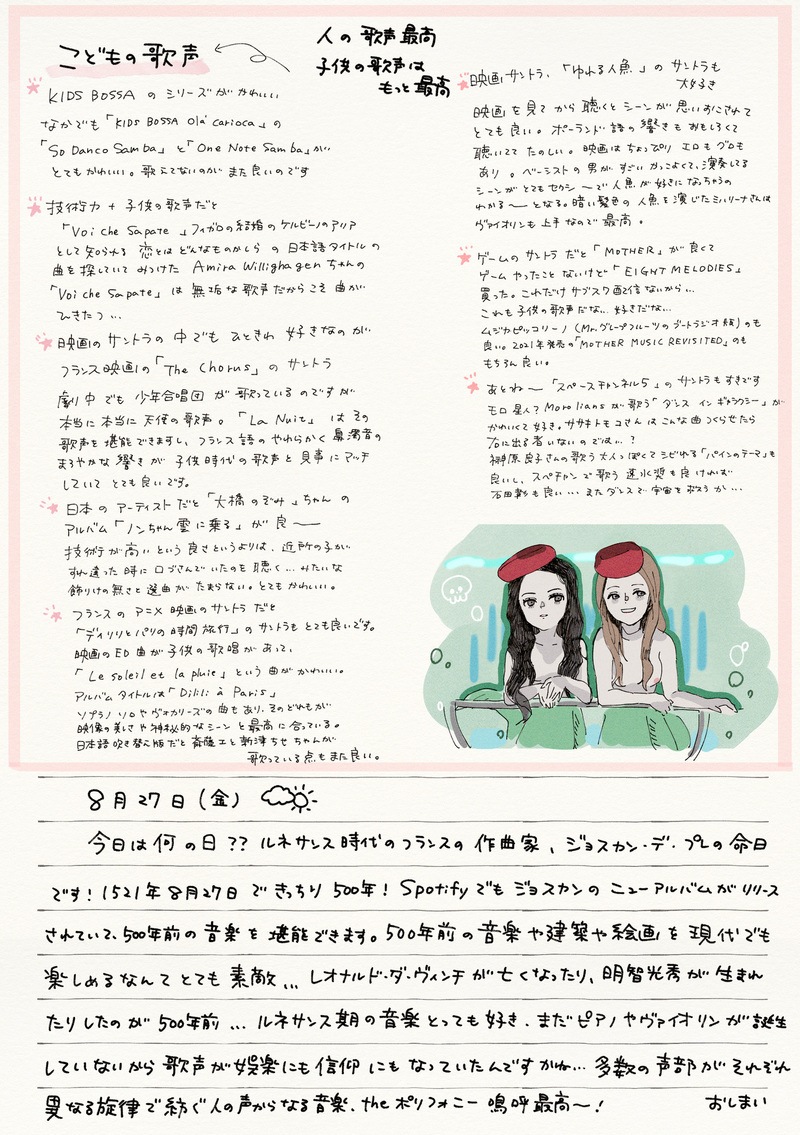 こどもの歌声
人の歌声最高
子供の歌声は
もっと最高
KIDS BOSSA のシリーズがかわいい
なかでも「KIDS BOSSA Olá Carioca」の
「So Danco Samba」と「One Note Samba」が
とてもかわいい。歌えてないのがまた良いのです
技術力+子供の歌声だと
「Voi che sapate」フィガロの結婚のケルビーノのアリア
として知られる 恋とはどんなものかしら の日本語タイトルの
曲を探していてみつけた Amira Willighagenちゃんの
「Voi che sapate」は無垢な歌声だからこそ曲が
ひきたつ…
映画のサントラの中でもひときわ好きなのが
フランス映画の「The Chorus」のサントラ
劇中でも少年合唱団が歌っているのですが
本当に本当に天使の歌声。「La Nuit」はその
歌声を堪能できますし、フランス語のやわらかく鼻濁音の
まろやかな響きが子供時代の歌声と見事にマッチ
していてとても良いです。
日本のアーティストだと「大橋のぞみ」ちゃんの
アルバム「ノンちゃん雲に乗る」が良〜
技術が高いという良さというよりは、近所の子が
すれ違った時に口ずさんでいたのを聴く…みたいな
飾りけの無さと選曲がたまらない。とてもかわいい。
フランスのアニメ映画のサントラだと
「ディリリとパリの時間旅行」のサントラもとても良いです。
映画のED曲が子供の歌唱があって、
「Le soleil et la pluie」という曲がかわいい。
アルバムタイトルは「Dilili à Paris」
ソプラノソロやヴォカリーズの曲もあり、そのどれもが
映像の美しさや神秘的なシーンと最高に合っている。
日本語吹き替え版だと斉藤工と新津ちせちゃんが
歌っている点もまた良い。
映画サントラ、「ゆれる人魚」のサントラも
大好き
映画を見てから聴くとシーンが思いおこされて
とても良い。ポーランド語の響きもおもしろくて
聴いててたのしい。映画はちょっぴりエロもグロも
あり。ベーシストの男がすごいかっこよくて、演奏してる
シーンがとてもセクシ〜で人魚が好きになっちゃうの
わかる〜となる。暗い髪色の人魚を演じたミハリーナさんは
ヴァイオリンも上手なので最高。
ゲームのサントラだと「MOTHER」が良くて
ゲームやったことないけど「EIGHT MELODIES」
買った。これだけサブスク配信ないから…
これも子供の歌声だな…好きだな…
ムジカピッコリーノ(Mr.グレープフルーツのブートラジオ版)のも
良い。2021年発売の「MOTHER MUSIC REVISITED」のも
もちろん良い。
あとね〜「スペースチャンネル5」のサントラもすきです
モロ星人?Moroliansが歌う「ダンスインギャラクシー」が
かわいくて好き。ササキトモコさんはこんな曲つくらせたら
右に出る者いないのでは…?
榊原良子さんの歌う大人っぽくてシビれる「パインのテーマ」も
良いし、スペチャンで歌う速水奨も良ければ
石田彰も良い…またダンスで宇宙を救うか…
8月27日(金)
今日は何の日??ルネサンス時代のフランスの作曲家、ジョスカン・デ・プレの命日
です!1521年8月27日できっちり500年!Spotifyでもジョスカンのニューアルバムがリリース
されていて、500年前の音楽を堪能できます。500年前の音楽や建築や絵画を現代でも
楽しめるなんてとても素敵… レオナルド・ダ・ヴィンチが亡くなったり、明智光秀が生まれ
たりしたのが500年前…ルネサンス期の音楽とっても好き、まだピアノやヴァイオリンが誕生
していないから歌声が娯楽にも信仰にもなっていたんですかね…多数の声部がそれぞれ
異なる旋律で紡ぐ人の声からなる音楽、theポリフォニー嗚呼最高〜!
おしまい